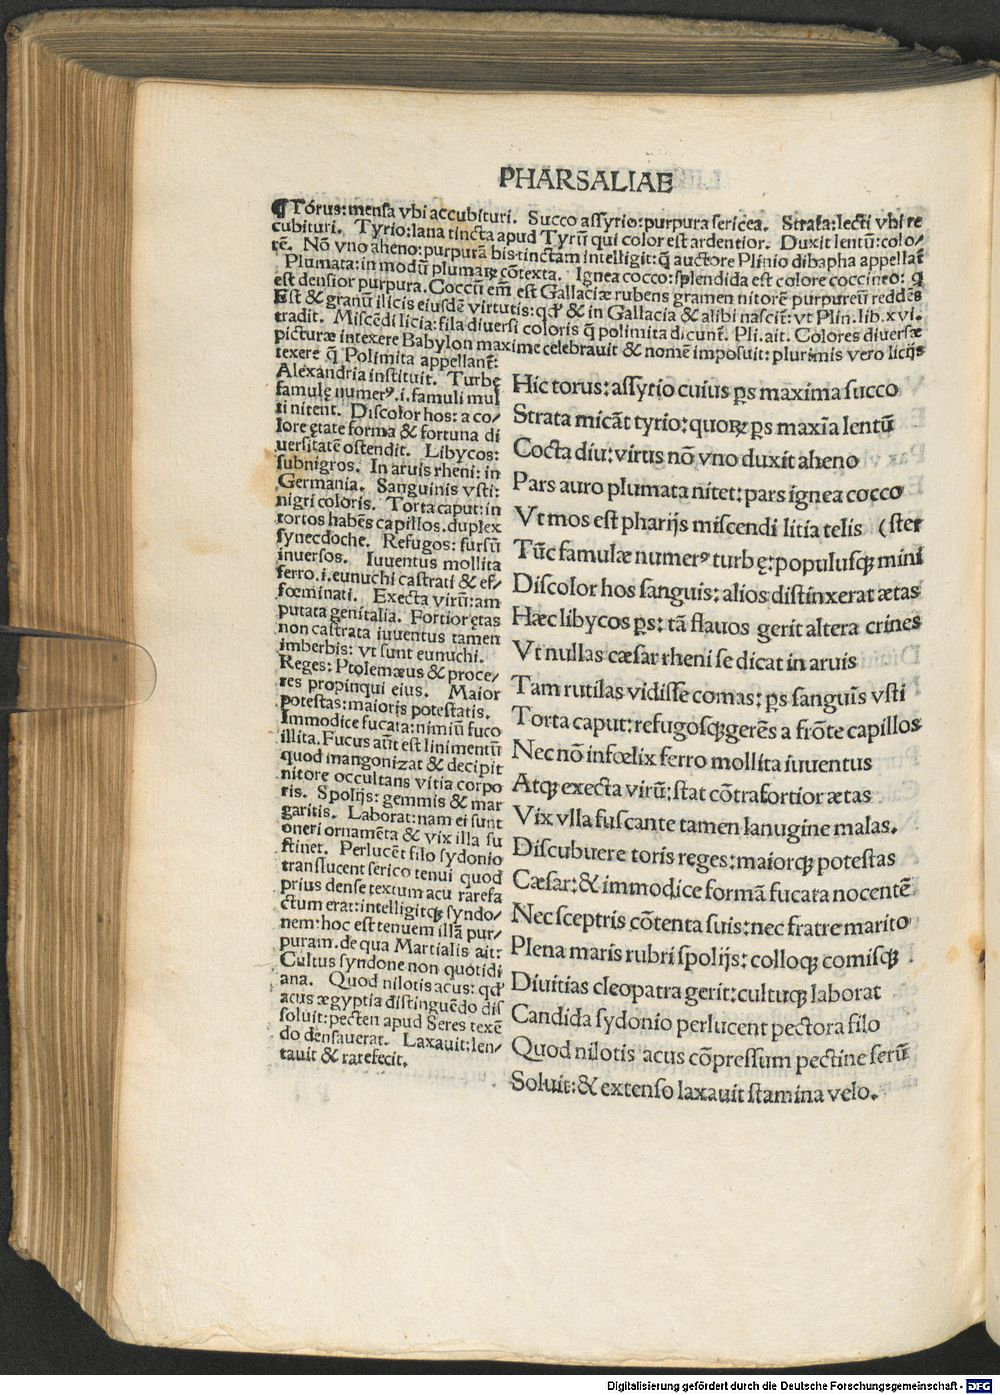 PHARSALIAE
¶ Torus: mensa vbi accubituri. Succo assyrio: purpura sericea. Strata: lecti vbi re
cubituri. Tyrio: lana tincta apud Tyrū qui color est ardentior. Duxit lentū: colo/
rē. Nō vno aheno: purpurā bis tinctam intelligit: q̄ auctore Plinio dibapha appellat̄
Plumata: in modū plumaꝝ cōtexta. Ignea cocco: splendida est colore coccineo: q̄
est densior purpura. Coccū em̄ est Gallaciæ rubens gramen nitorē purpureū reddēs
Est & granū ilicis eiusdē virtutis: qd' & in Gallacia & alibi nascit̄: vt Plin. lib. xvi.
tradit. Miscēdi licia: fila diuersi coloris q̄ polimita dicunt̄. Pli. ait. Colores diuersæ
picturæ intexere Babylon maxime celebrauit & nomē imposuit: plurimis vero licijs
texere q̄ Polimita appellant̄:
Alexandria instituit. Turbę
famulę numerꝰ. i. famuli mul
ti nitent. Discolor hos: a co/
lore ętate forma & fortuna di
uersitatē ostendit. Libycos:
subnigros. In aruis rheni: in
Germania. Sanguinis vsti:
nigri coloris. Torta caput: in
tortos habēs capillos. duplex
synecdoche. Refugos: sursū
inuersos. Iuuentus mollita
ferro. i. eunuchi castrati & ef/
fœminati. Execta virū: am
putata genitalia. Fortior ętas
non castrata iuuentus tamen
imberbis: vt sunt eunuchi.
Reges: Ptolemæus & proce/
res propinqui eius. Maior
potestas: maioris potestatis.
Immodice fucata: nimiū fuco
illita. Fucus aūt est linimentū
quod mangonizat & decipit
nitore occultans vitia corpo
ris. Spolijs: gemmis & mar
garitis. Laborat: nam ei sunt
oneri ornamēta & vix illa su
stinet. Perlucēt filo sydonio
translucent serico tenui quod
prius dense textum acu rarefa
ctum erat: intelligitqꝫ syndo/
nem: hoc est tenuem illā pur/
puram. de qua Martialis ait:
Cultus syndone non quotidi
ana. Quod nilotis acus: qd'
acus ægyptia distinguēdo dis
soluit: pecten apud Seres texē
do densauerat. Laxauit: len/
tauit & rarefecit.
Hic torus: assyrio cuius ꝑs maxima succo
Strata micāt tyrio: quoꝝ ꝑs maxīa lentū
Cocta diu: virus nō vno duxit aheno
Pars auro plumata nitet: pars ignea cocco
Vt mos est pharijs miscendi litia telis (ster
Tūc famulæ numerꝰ turbę: populusqꝫ mini
Discolor hos sanguis: alios distinxerat ætas
Hæc libycos ꝑs: tā flauos gerit altera crines
Vt nullas cæsar rheni se dicat in aruis
Tam rutilas vidisse comas: ꝑs sanguīs vsti
Torta caput: refugosqꝫ gerēs a frōte capillos
Nec nō infœlix ferro mollita iuuentus
Atqꝫ execta virū: stat cōtra fortior ætas
Vix vlla fuscante tamen lanugine malas.
Discubuere toris reges: maiorqꝫ potestas
Cæsar: & immodice formā fucata nocentē
Nec sceptris cōtenta suis: nec fratre marito
Plena maris rubri spolijs: colloqꝫ comisqꝫ
Diuitias cleopatra gerit: cultuqꝫ laborat
Candida sydonio perlucent pectora filo
Quod nilotis acus cōpressum pectine serū
Soluit: & extenso laxauit stamina velo.
Digitalisierung gefördert durch die Deutsche Forschungsgemeinschaft - DFG